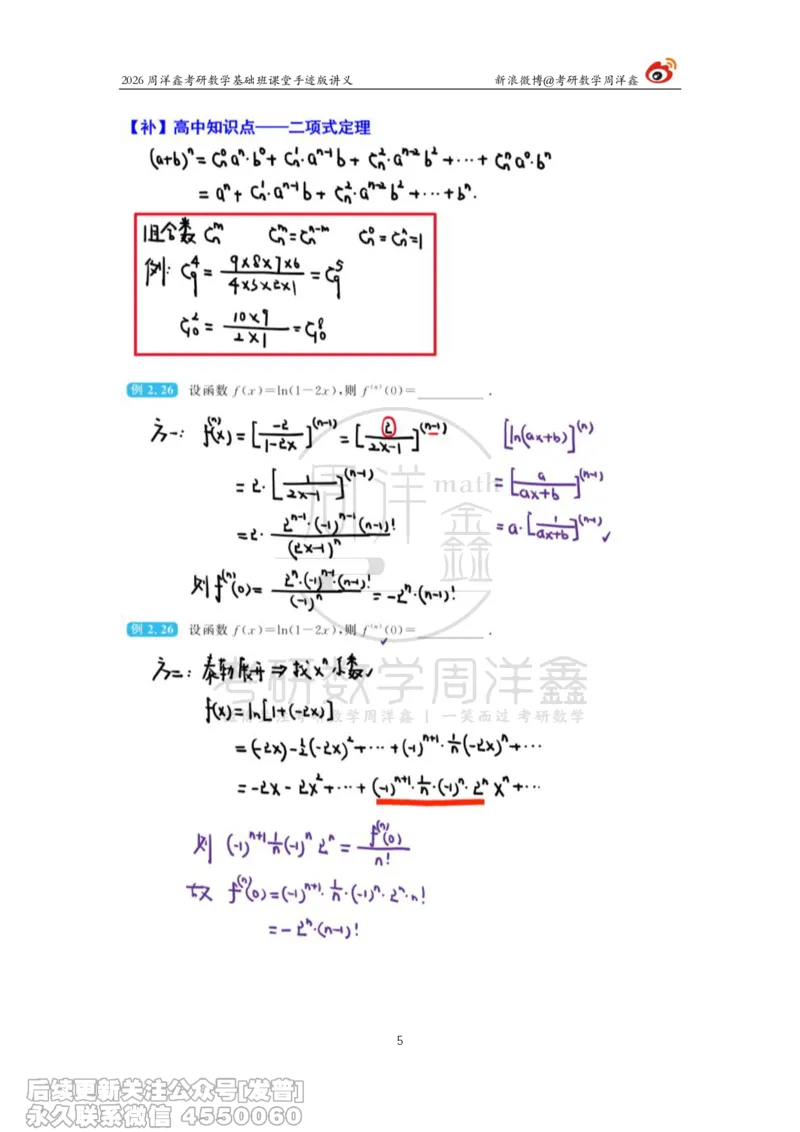 2026周洋鑫考研数学基础班课堂手迹版讲义 新浪微博@考研数学周洋鑫
【补】高中知识点——二项式定理
(a+b)^n = C_n^0 a^n·b^0 + C_n^1·a^{n-1}b + C_n^2·a^{n-2}b^2 + ··· + C_n^n a^0·b^n
= a^n + C_n^1·a^{n-1}b + C_n^2·a^{n-2}b^2 + ··· + b^n.
组合数 C_n^m  C_n^m = C_n^{n-m}  C_n^0 = C_n^n = 1
例: C_9^4 = \frac{9×8×7×6}{4×3×2×1} = C_9^5
C_{10}^2 = \frac{10×9}{2×1} = C_{10}^8
例 2.26 设函数 f(x)=ln(1-2x),则 f^{(n)}(0)=________.
方一: f^{(n)}(x) = [\frac{-2}{1-2x}]^{(n-1)} = [\frac{2}{2x-1}]^{(n-1)}
= 2·[\frac{1}{2x-1}]^{(n-1)}
= 2·\frac{2^{n-1}·(-1)^{n-1}(n-1)!}{(2x-1)^n}
则 f^{(n)}(0) = \frac{2^n·(-1)^{n-1}·(n-1)!}{(-1)^n} = -2^n·(n-1)!
[ln(ax+b)]^{(n)}
= [\frac{a}{ax+b}]^{(n-1)}
= a·[\frac{1}{ax+b}]^{(n-1)} ✓
例 2.26 设函数 f(x)=ln(1-2x),则 f^{(n)}(0)=________.
方二: 泰勒展开 ⇒ 找 x^n 系数✓
f(x) = ln[1+(-2x)]
= (-2x) - \frac{1}{2}(-2x)^2 + ··· + (-1)^{n+1}·\frac{1}{n}(-2x)^n + ···
= -2x - 2x^2 + ··· + (-1)^{n+1}·\frac{1}{n}·(-1)^n·2^n x^n + ···
则 (-1)^{n+1}\frac{1}{n}(-1)^n 2^n = \frac{f^{(n)}(0)}{n!}
故 f^{(n)}(0) = (-1)^{n+1}·\frac{1}{n}·(-1)^n·2^n·n!
= -2^n·(n-1)!
周洋 math
鑫
考研数学周洋鑫
数学周洋鑫 | 一笑而过 考研数学
5
后续更新关注公众号[发普]
永久联系微信 4550060